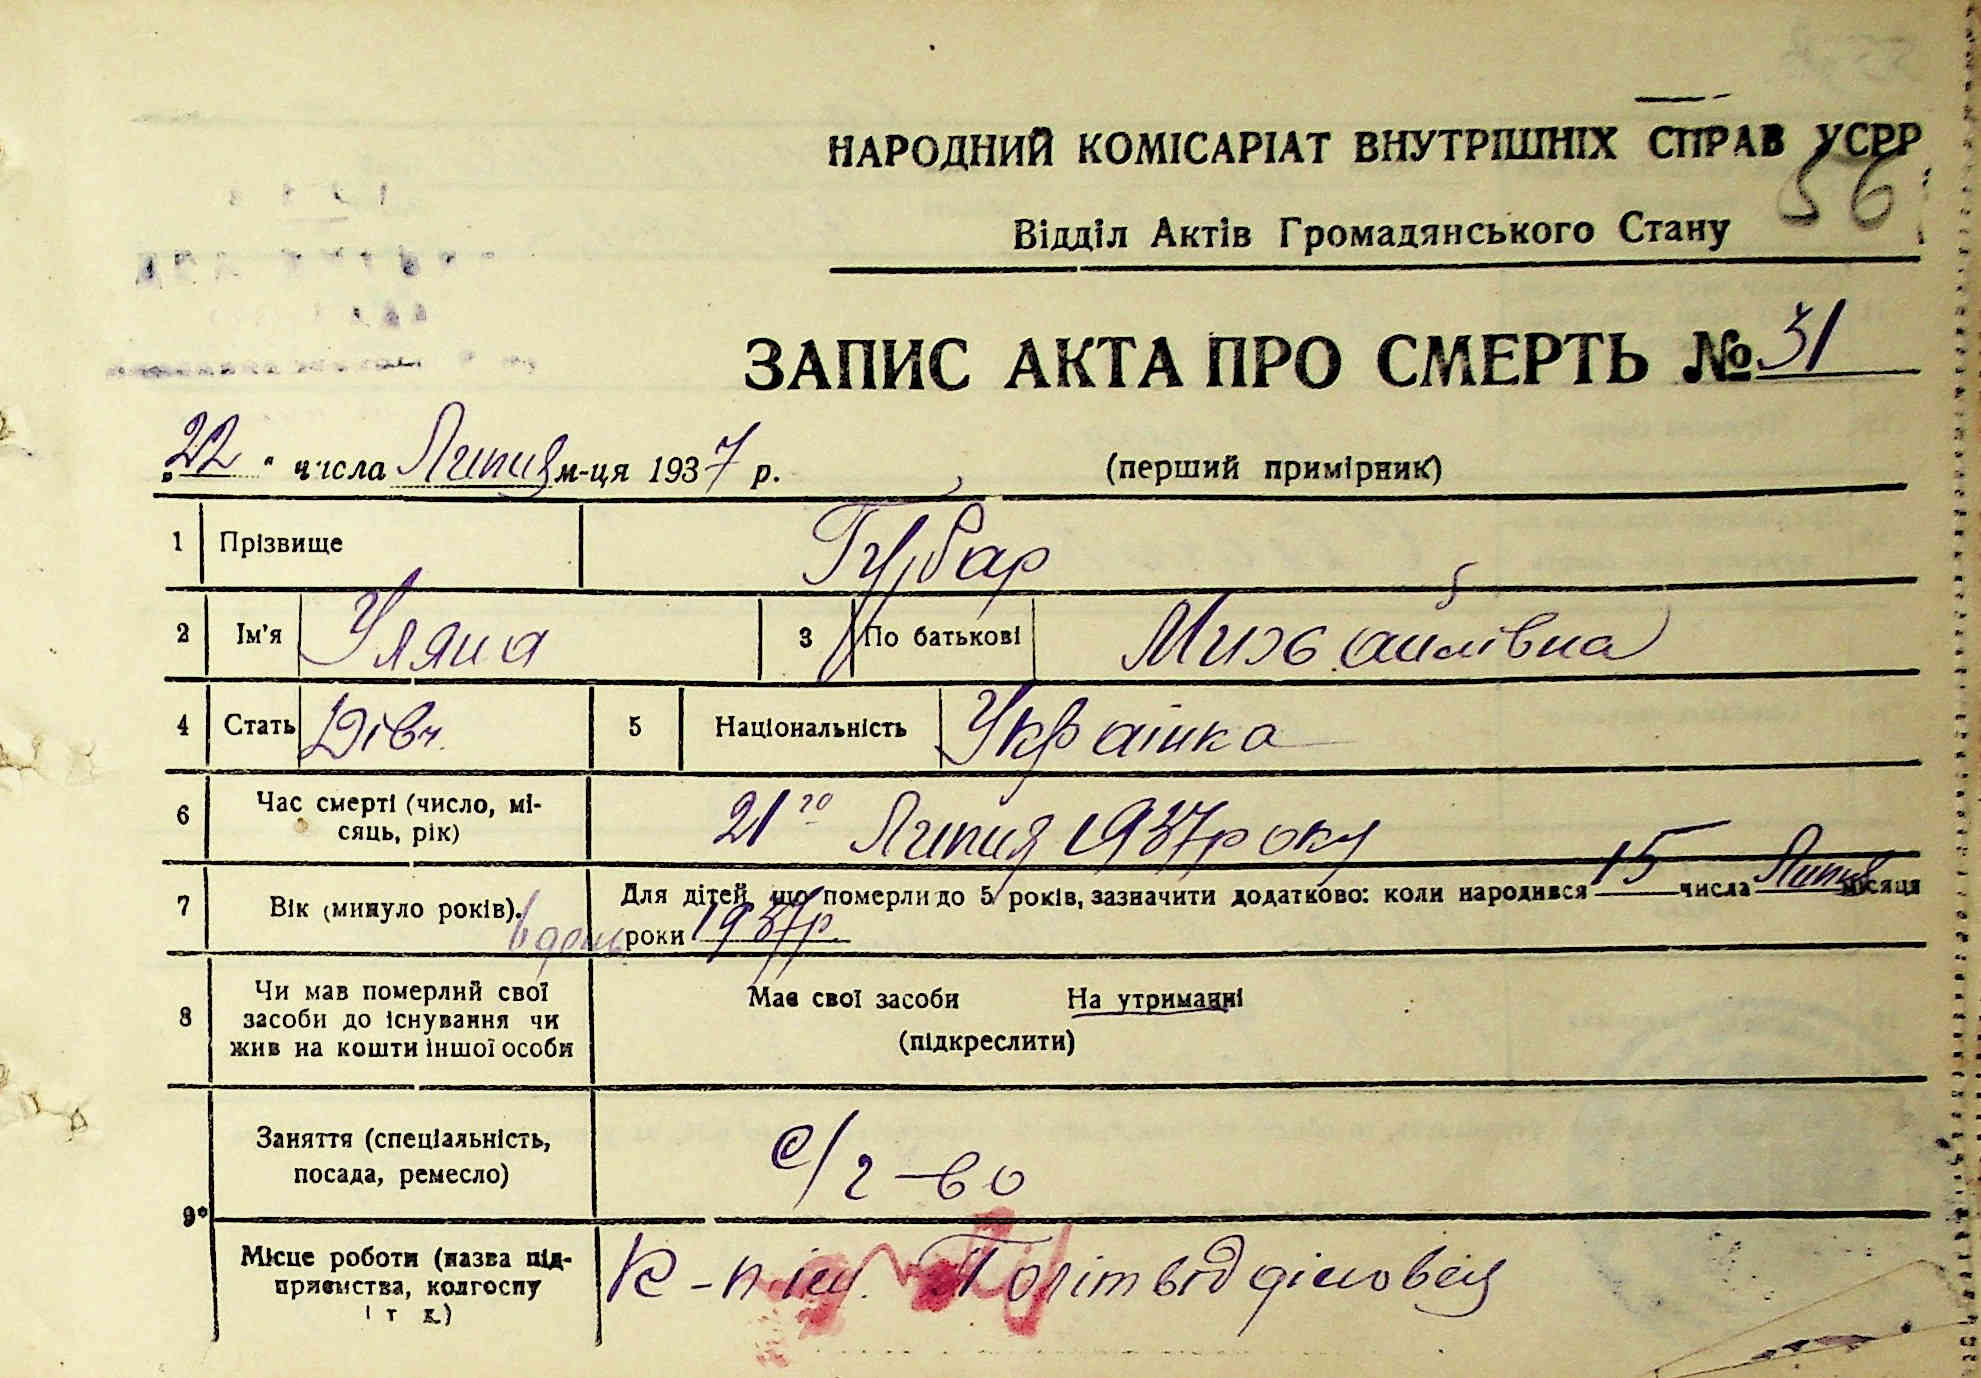 56
НАРОДНИЙ КОМІСАРІАТ ВНУТРІШНІХ СПРАВ УСРР
Відділ Актів Громадянського Стану
ЗАПИС АКТА ПРО СМЕРТЬ № 31
"22" числа Липня м-ця 1937 р. (перший примірник)
1 Прізвище Губар
2 Ім'я Уляна 3 По батькові Михайлівна
4 Стать Дівч. 5 Національність Українка
6 Час смерті (число, мі-
сяць, рік) 21го Липня 1937 року
7 Вік (минуло років). 6 день Для дітей, що померли до 5 років, зазначити додатково: коли народився 15 числа Липня місяця
роки 1937р.
8 Чи мав померлий свої
засоби до існування чи
жив на кошти іншої особи
Має свої засоби На утриманні
(підкреслити)
9 Заняття (спеціальність,
посада, ремесло) с/г-во
Місце роботи (назва під-
приємства, колгоспу
і т. д.) К-п ім. Політвідділовець